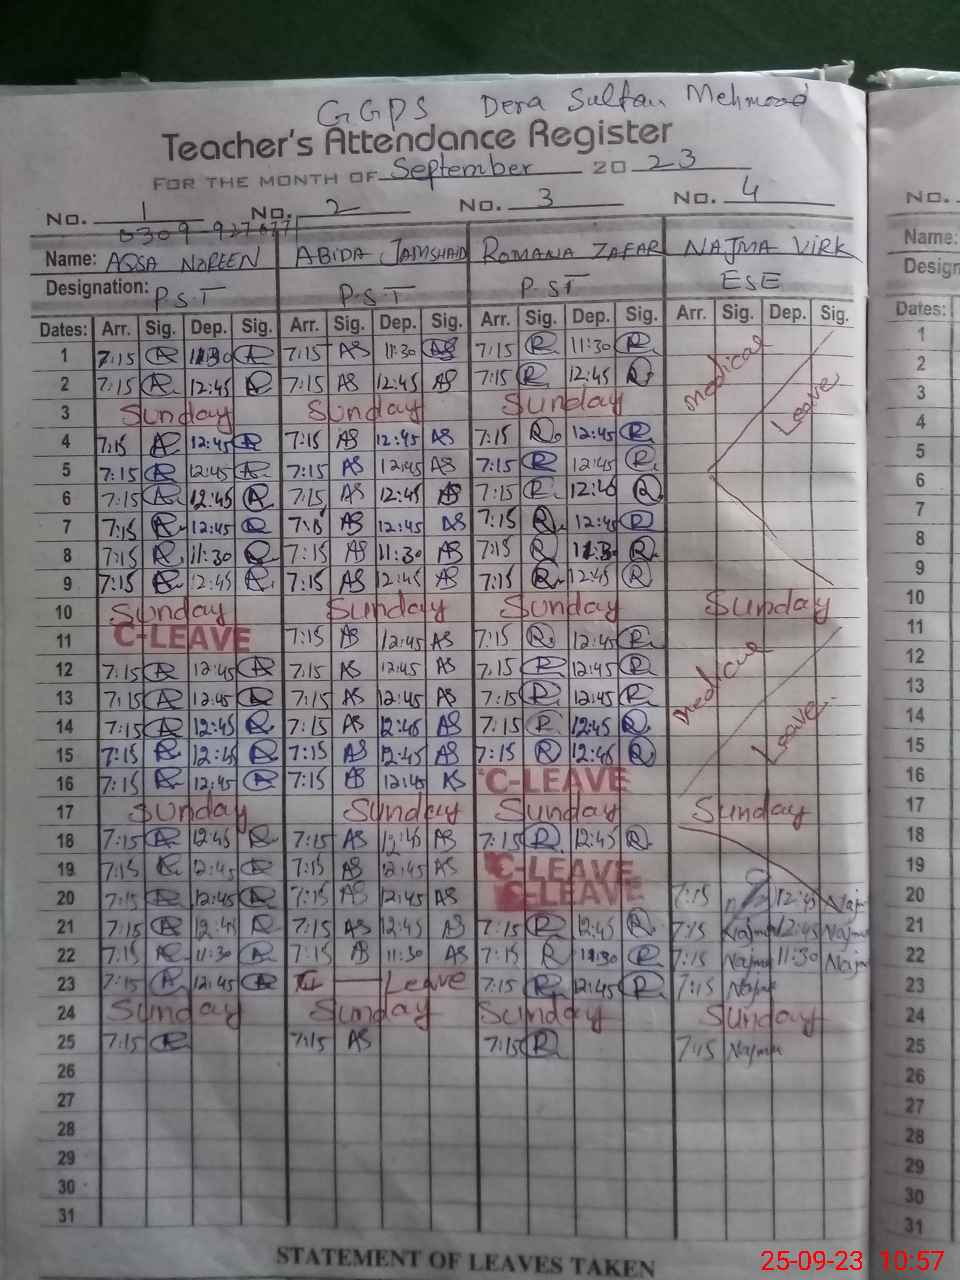 GGPS Dera Sultan Mehmood
Teacher's Attendance Register
FOR THE MONTH OF September 2023
No. 1 No. 2 No. 3 No. 4 No.
Name: AQSA NOREEN ABIDA JAMSHAID ROMANA ZAFAR NAJMA VIRK Name:
Designation: P.S.T P.S.T P.ST ESE Design
Dates: Arr. Sig. Dep. Sig. Arr. Sig. Dep. Sig. Arr. Sig. Dep. Sig. Arr. Sig. Dep. Sig. Dates:
1 7:15 11:30 7:15 AS 11:30 AS 7:15 R 11:30 R Medical 1
2 7:15 12:45 7:15 AS 12:45 AS 7:15 R 12:45 R Leave 2
3 Sunday Sunday Sunday 3
4 7:15 12:45 7:15 AS 12:45 AS 7:15 R 12:45 R 4
5 7:15 12:45 7:15 AS 12:45 AS 7:15 R 12:45 R 5
6 7:15 12:45 7:15 AS 12:45 AS 7:15 R R 6
7 7:15 12:45 AS 12:45 AS 7:15 R 12:45 R 7
8 7:15 11:30 7:15 AS 11:30 AS 7:15 R 11:30 R 8
9 7:15 12:45 7:15 AS 12:45 AS 7:15 R 12:45 R 9
10 Sunday Sunday Sunday Sunday 10
11 C-LEAVE 7:15 AS 12:45 AS 7:15 R 12:45 R 11
12 7:15 12:45 7:15 AS 12:45 AS 7:15 R 12:45 R Medical 12
13 7:15 12:45 7:15 AS 12:45 AS 7:15 R 12:45 R 13
14 7:15 12:45 7:15 AS AS 7:15 R 12:45 R Leave 14
15 7:15 7:15 AS 12:45 AS 7:15 R R 15
16 7:15 12:45 7:15 AS 12:45 AS C-LEAVE 16
17 Sunday Sunday Sunday Sunday 17
18 7:15 12:45 7:15 AS AS 7:15 R 12:45 R 18
19 7:15 12:45 7:15 AS 12:45 AS C-LEAVE 19
20 7:15 12:45 7:15 AS 12:45 AS C-LEAVE 7:15 12:45 Najm 20
21 7:15 7:15 AS 12:45 AS 7:15 R 12:45 R 7:15 Najma 12:45 Najma 21
22 7:15 11:30 7:15 AS 11:30 AS 7:15 R 11:30 R 7:15 Najma 11:30 Najm 22
23 7:15 12:45 Leave 7:15 R 12:45 R 7:15 Najma 23
24 Sunday Sunday Sunday Sunday 24
25 7:15 7:15 AS 7:15 R 7:15 Najma 25
26 26
27 27
28 28
29 29
30 30
31 31
STATEMENT OF LEAVES TAKEN
25-09-23 10:57